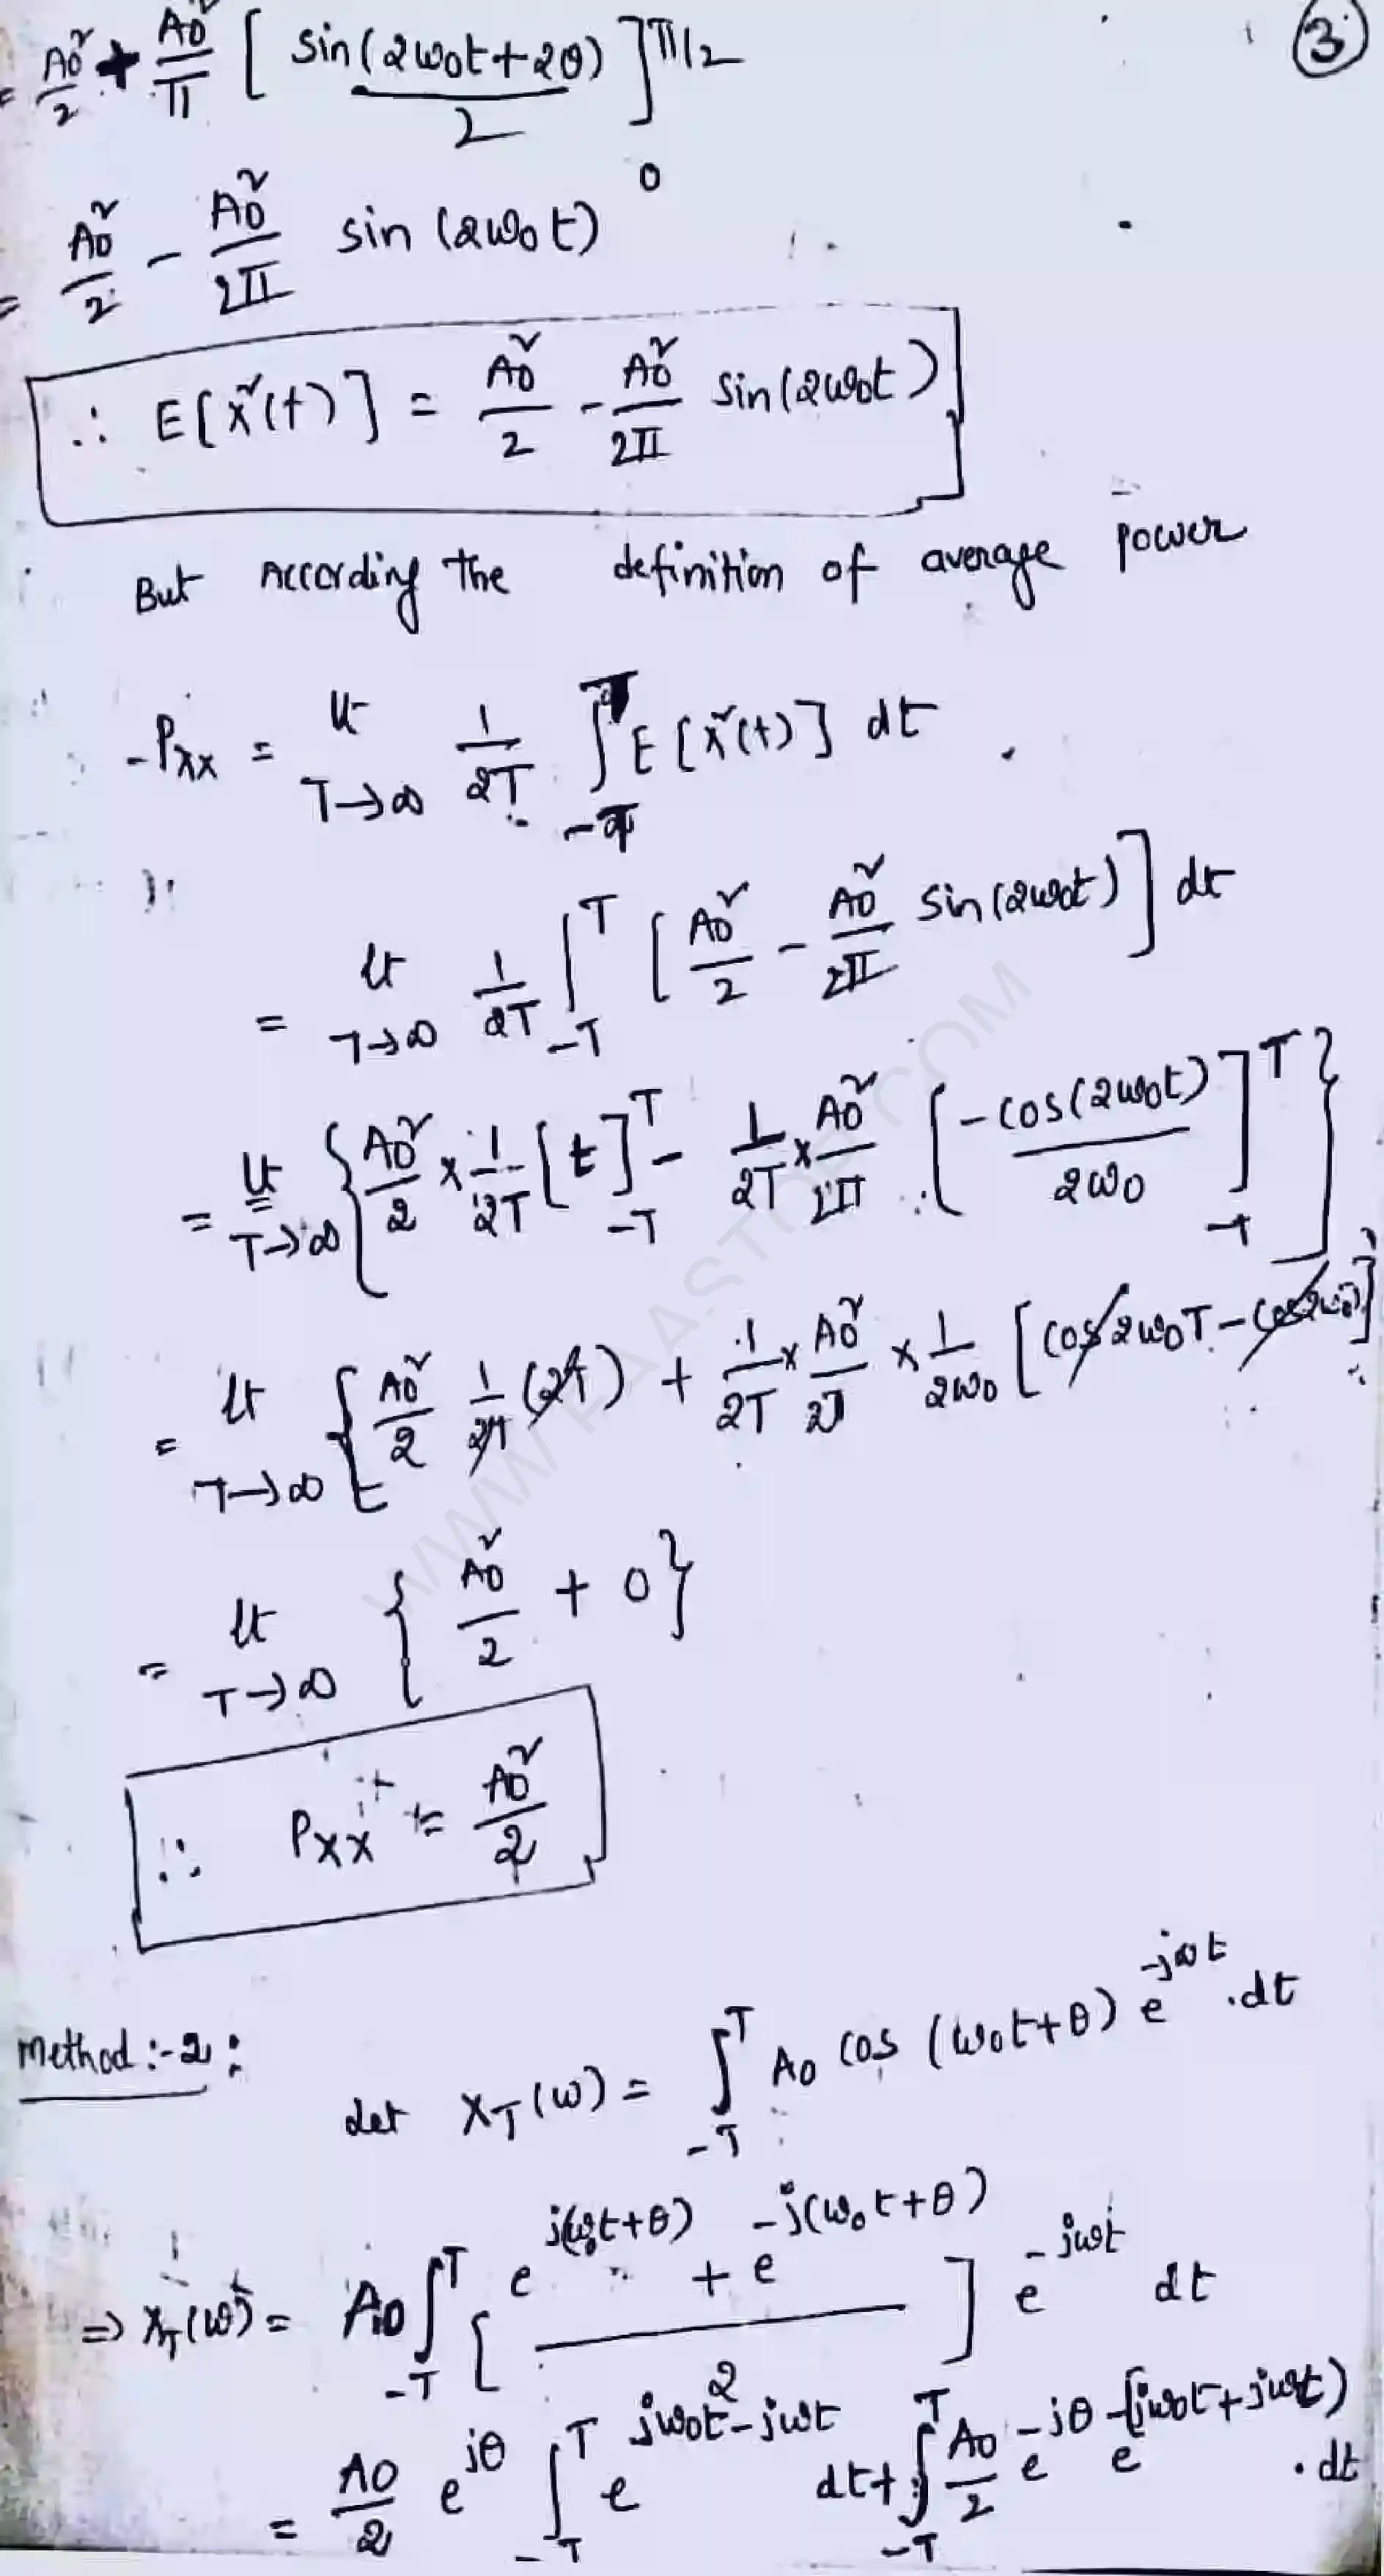 ③
= A0²/2 + A0²/π [ sin(2ω0t+2θ)/2 ]₀^π/2
= A0²/2 - A0²/2π sin(2ω0t)
∴ E[X²(t)] = A0²/2 - A0²/2π sin(2ω0t)
But According the definition of average power
-Pxx = lt T→∞ 1/2T ∫_-T^T E[X²(t)] dt
= lt T→∞ 1/2T ∫_-T^T [A0²/2 - A0²/2π sin(2ω0t)] dt
= lt T→∞ { A0²/2 × 1/2T [t]_-T^T - 1/2T × A0²/2π [ -cos(2ω0t)/2ω0 ]_-T^T }
= lt T→∞ { A0²/2 1/2T (2T) + 1/2T × A0²/2π × 1/2ω0 [cos2ω0T - cos2ω0T]
= lt T→∞ { A0²/2 + 0 }
∴ Pxx = A0²/2
Method:-2:
Let XT(ω) = ∫_-T^T A0 cos(ω0t+θ) e^-jωt .dt
⇒ XT(ω) = A0 ∫_-T^T [ e^j(ω0t+θ) + e^-j(ω0t+θ) / 2 ] e^-jωt dt
= A0/2 e^jθ ∫_-T^T e^jω0t-jωt dt + ∫_-T^T A0/2 e^-jθ e^-[jω0t+jωt) .dt